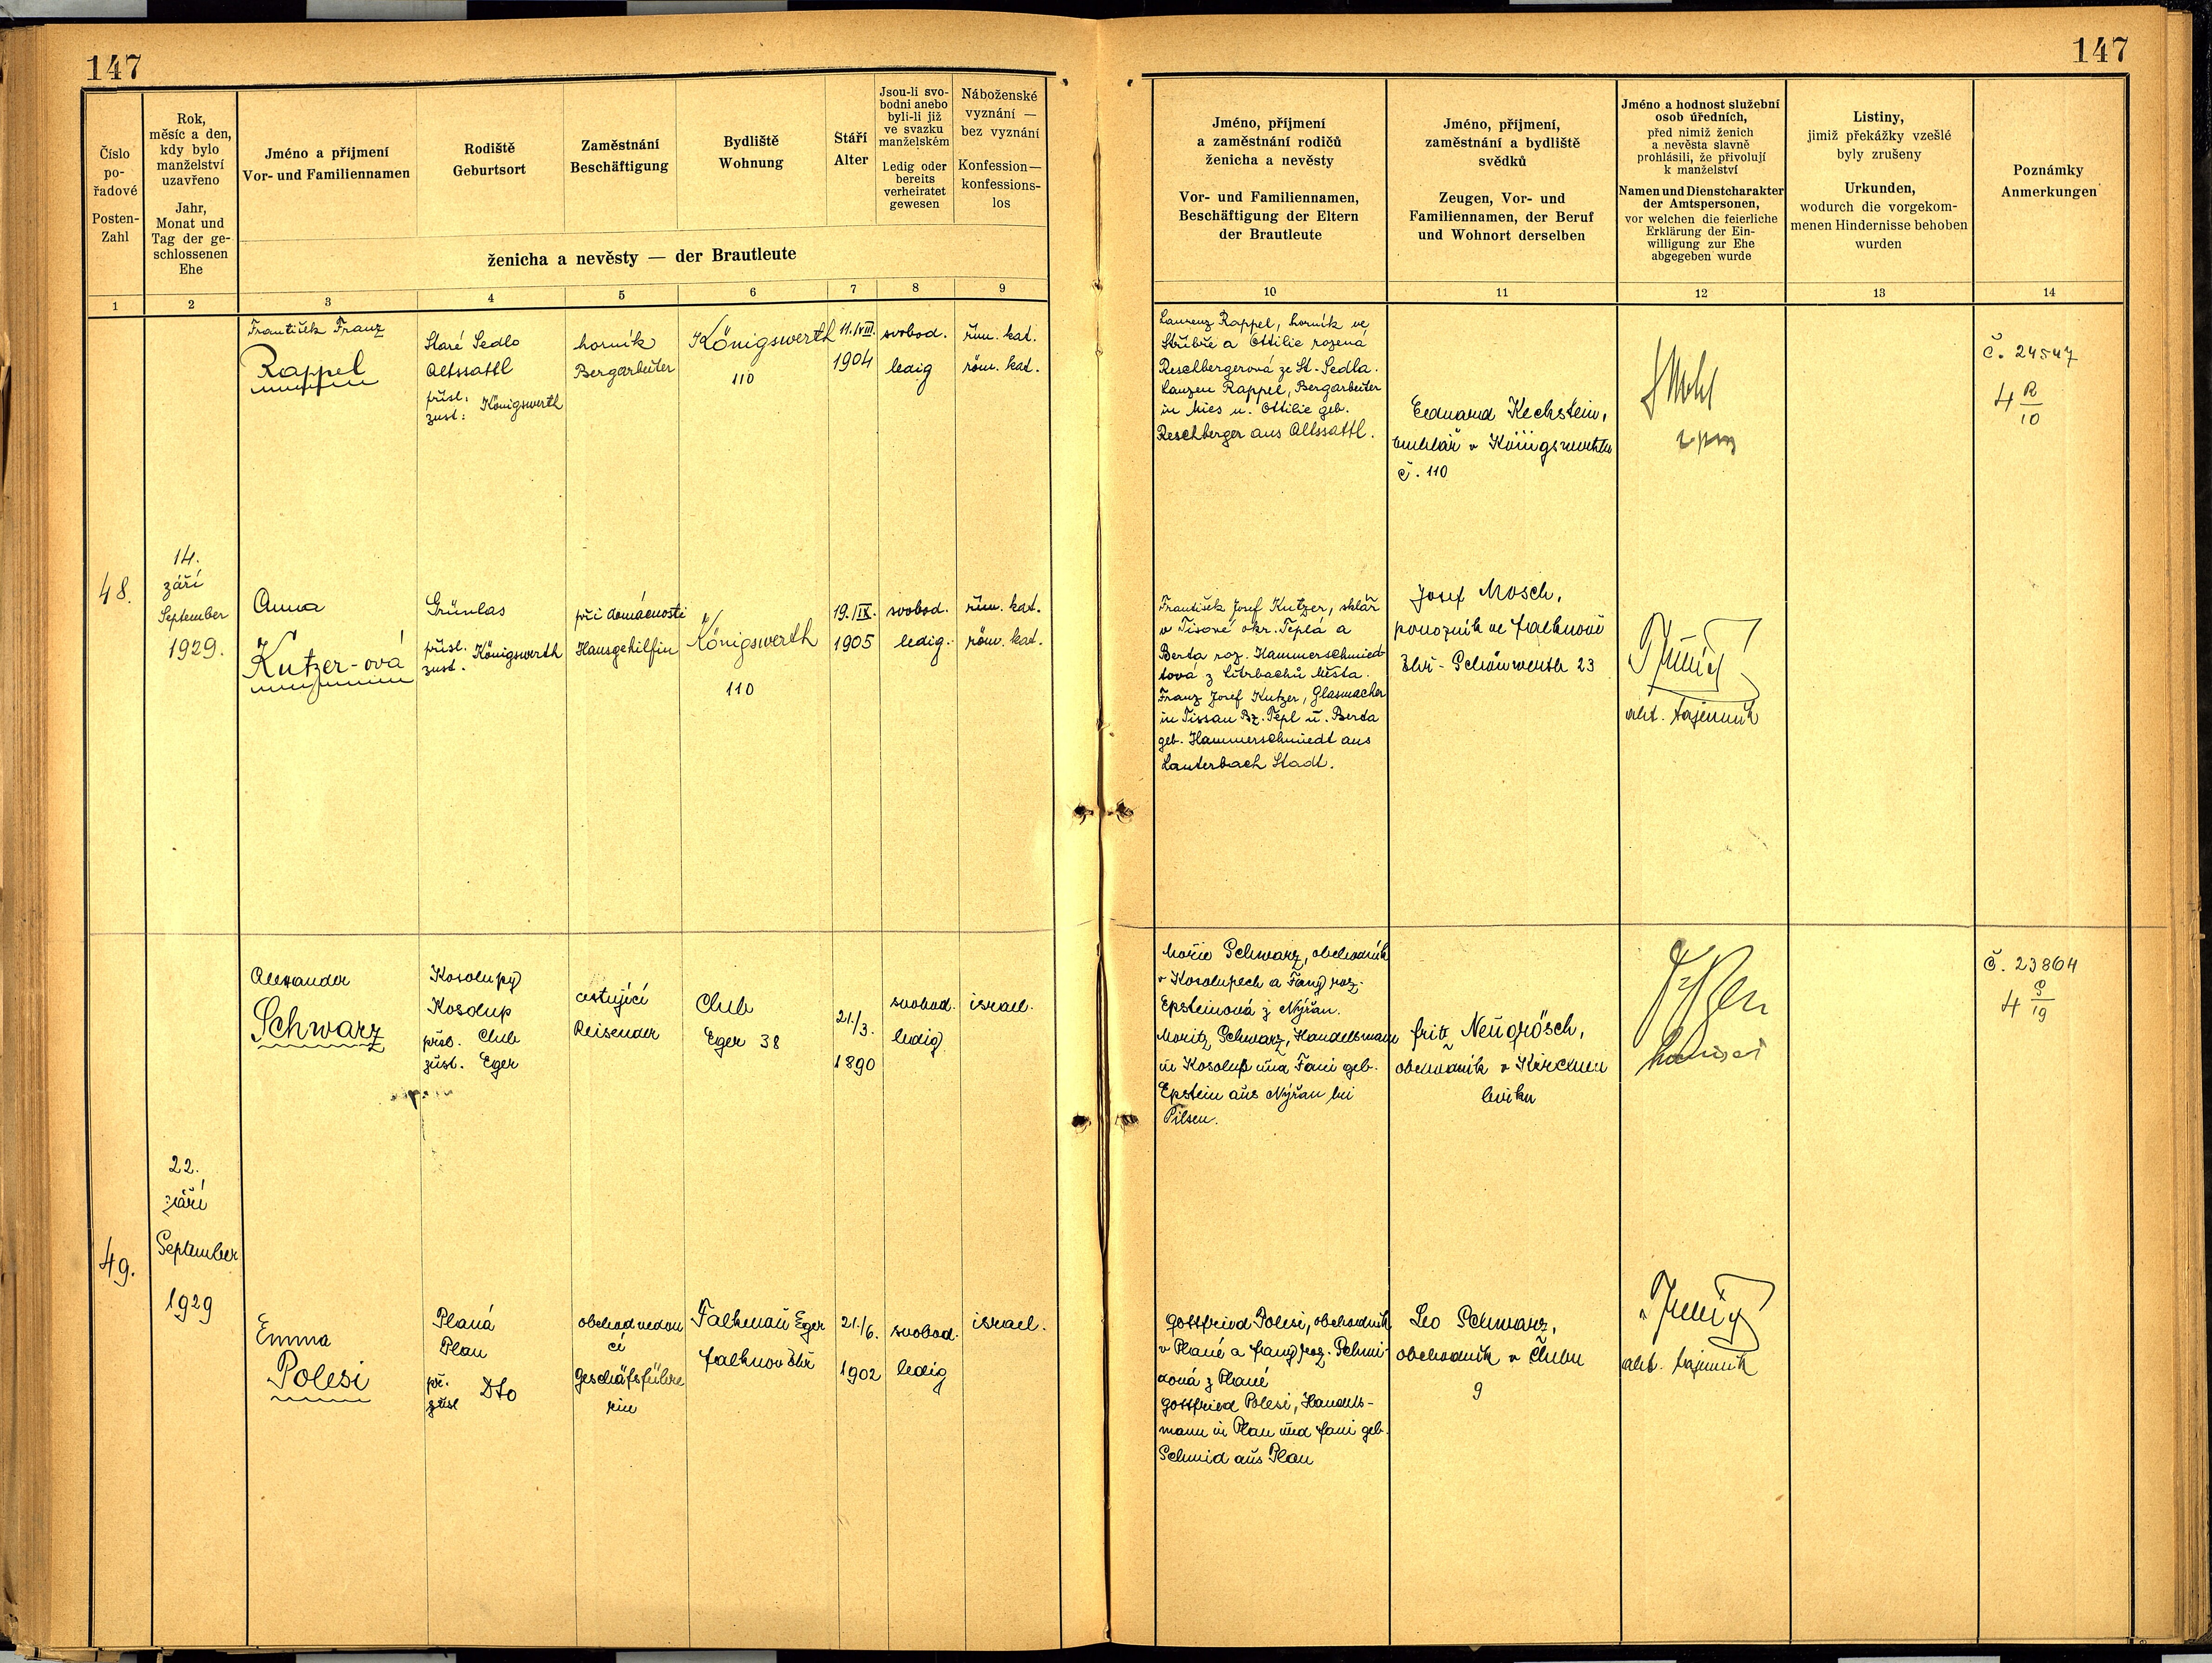 147
147
Číslo
po-
řadové
Posten-
Zahl
Rok,
měsíc a den,
kdy bylo
manželství
uzavřeno
Jahr,
Monat und
Tag der ge-
schlossenen
Ehe
Jméno a příjmení
Vor- und Familiennamen
Rodiště
Geburtsort
Zaměstnání
Beschäftigung
Bydliště
Wohnung
Stáří
Alter
Jsou-li svo-
bodni anebo
byli-li již
ve svazku
manželském
Ledig oder
bereits
verheiratet
gewesen
Náboženské
vyznání —
bez vyznání
Konfession—
konfessions-
los
ženicha a nevěsty — der Brautleute
1 2 3 4 5 6 7 8 9
Jméno, příjmení
a zaměstnání rodičů
ženicha a nevěsty
Vor- und Familiennamen,
Beschäftigung der Eltern
der Brautleute
Jméno, příjmení,
zaměstnání a bydliště
svědků
Zeugen, Vor- und
Familiennamen, der Beruf
und Wohnort derselben
Jméno a hodnost služební
osob úředních,
před nimiž ženich
a nevěsta slavně
prohlásili, že přivolují
k manželství
Namen und Dienstcharakter
der Amtspersonen,
vor welchen die feierliche
Erklärung der Ein-
willigung zur Ehe
abgegeben wurde
Listiny,
jimiž překážky vzešlé
byly zrušeny
Urkunden,
wodurch die vorgekom-
menen Hindernisse behoben
wurden
Poznámky
Anmerkungen
10 11 12 13 14
48.
14.
září
September
1929.
František Franz
Rappel
Staré Sedlo
Altssattl
přísl.
zust: Königswerth
horník
Bergarbeiter
Königswerth
110
11./VIII.
1904
svobod.
ledig
řím. kat.
röm. kat.
Laurenz Rappel, horník ve
Stříbře a Ottilie rozená
Reschbergerová ze St. Sedla.
Lauzen Rappel, Bergarbeiter
in Mies u. Ottilie geb.
Reschberger aus Altssattl.
Eduard Kechstein,
č. 110
č. 24547
4 R
10
Anna
Kutzer-ová
Grünlas
přísl.
zust. Königswerth
při domácnosti
Hausgehilfin
Königswerth
110
19./IX.
1905
svobod.
ledig.
řím. kat.
röm. kat.
František Josef Kutzer, sklář
v Tisové okr. Teplá a
Berta roz. Hammerschmied-
tová z Litrbachů Města.
Franz Josef Kutzer, Glasmacher
in Tissau Bz. Tepl u. Berta
geb. Hammerschmiedt aus
Lauterbach Stadt.
Josef Mosch,
ponozník ve Falknově
Schönwerth 23
akt. tajemník
49.
22.
září
September
1929
Alexander
Schwarz
Kosolupy
Kosolup
přísl. Cheb
zust. Eger
cestující
Reisender
Cheb
Eger 38
21./3.
1890
svobod.
ledig
israel.
Moric Schwarz, obchodník
v Kosolupech a Fany roz.
Epsteinová z Nýřan.
Moritz Schwarz, Handelsmann
in Kosolup und Fani geb.
Epstein aus Nýřan bei
Pilsen.
Fritz Neugrösch,
obchodník v Kirchen
birku
č. 23864
4 S
19
Emma
Polesi
Planá
Plan
př.
zust Dto
obchodvedou
cí
Geschäfsführe
rin
Falkenau Eger
Falknov Ohř
21./6.
1902
svobod.
ledig
israel.
Gottfried Polesi, obchodník
v Plané a Fany roz. Schmi-
dová z Plané
Gottfried Polesi, Handels-
mann in Plan und Fani geb.
Schmid aus Plan
Leo Schwarz,
obchodník v Chebu
9
akt. tajemník